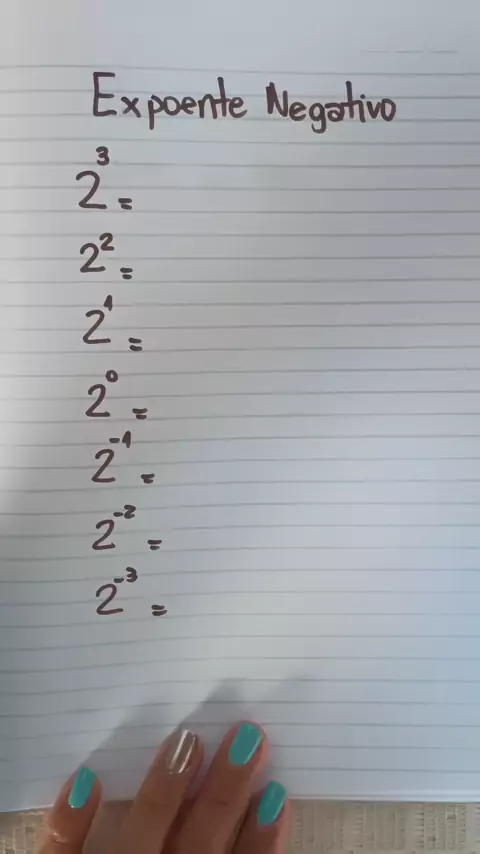 Expoente Negativo
2³ =
2² =
2¹ =
2⁰ =
2⁻¹ =
2⁻² =
2⁻³ =